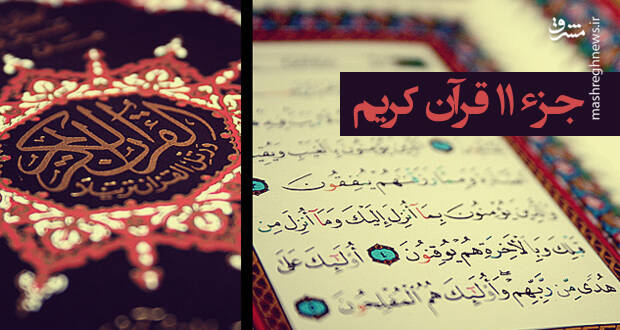 مشرق
mashreghnews.ir
جزء ۱۱ قرآن کریم
القرآن الكريم
ورتل القرآن ترتيلا
وَمِمَّا رَزَقْنَٰهُمْ يُنفِقُونَ
وَالَّذِينَ يُؤْمِنُونَ بِمَا أُنزِلَ إِلَيْكَ وَمَا أُنزِلَ مِن
قَبْلِكَ وَبِالْآخِرَةِ هُمْ يُوقِنُونَ ٤ أُولَٰئِكَ عَلَىٰ
هُدًى مِّن رَّبِّهِمْ وَأُولَٰئِكَ هُمُ الْمُفْلِحُونَ ٥